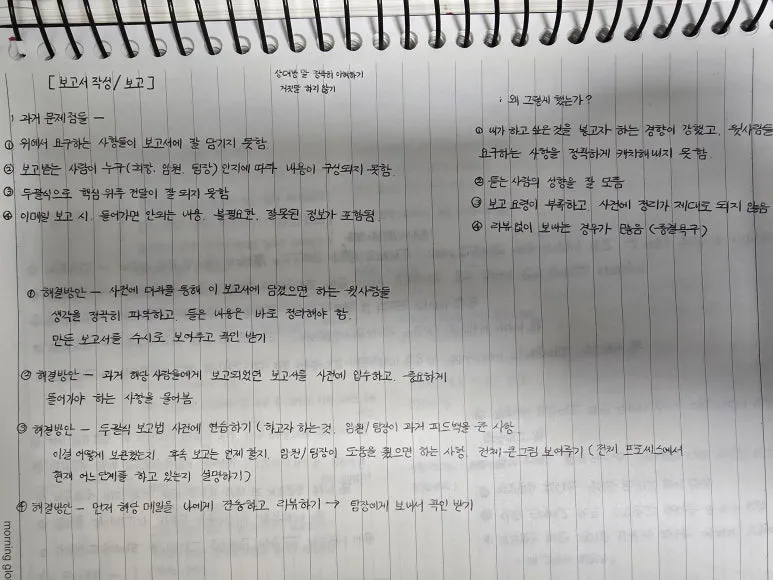 [보고서 작성 / 보고]
상대방 말 정확히 이해하기
거짓말 하지 않기
: 과거 문제점들 —
① 위에서 요구하는 사항들이 보고서에 잘 담기지 못함.
② 보고받는 사람이 누구(회장, 임원, 팀장)인지에 따라 내용이 구성되지 못함.
③ 두괄식으로 핵심 위주 전달이 잘 되지 못함
④ 이메일 보고 시, 들어가면 안되는 내용, 불필요한, 잘못된 정보가 포함됨
: 왜 그렇게 했는가?
① 내가 하고 싶은 것을 넣고자 하는 경향이 강했고, 윗사람들
요구하는 사항을 정확하게 캐치해내지 못함.
② 듣는 사람의 성향을 잘 모름
③ 보고 요령이 부족하고, 사전에 정리가 제대로 되지 않음
④ 리뷰없이 보내는 경우가 많음 (-종결욕구)
① 해결방안 — 사전에 대화를 통해 이 보고서에 담겼으면 하는 윗사람들
생각을 정확히 파악하고, 들은 내용은 바로 정리해야 함.
만든 보고서를 수시로 보여주고 확인 받기
② 해결방안 — 과거 해당 사람들에게 보고되었던 보고서를 사전에 입수하고, 중요하게
들어가야 하는 사항을 물어봄.
③ 해결방안 — 두괄식 보고법 사전에 연습하기 (하고자 하는 것, 임원/팀장이 과거 피드백을 준 사항,
이걸 어떻게 보완했는지 후속 보고는 언제 할지, 임원/팀장이 도움을 줬으면 하는 사항, 전체 큰그림 보여주기 (전체 프로세스에서
현재 어느단계를 하고 있는지 설명하기)
④ 해결방안 — 먼저 해당 메일을 나에게 전송하고, 리뷰하기 → 팀장에게 보내서 확인 받기
morning glo